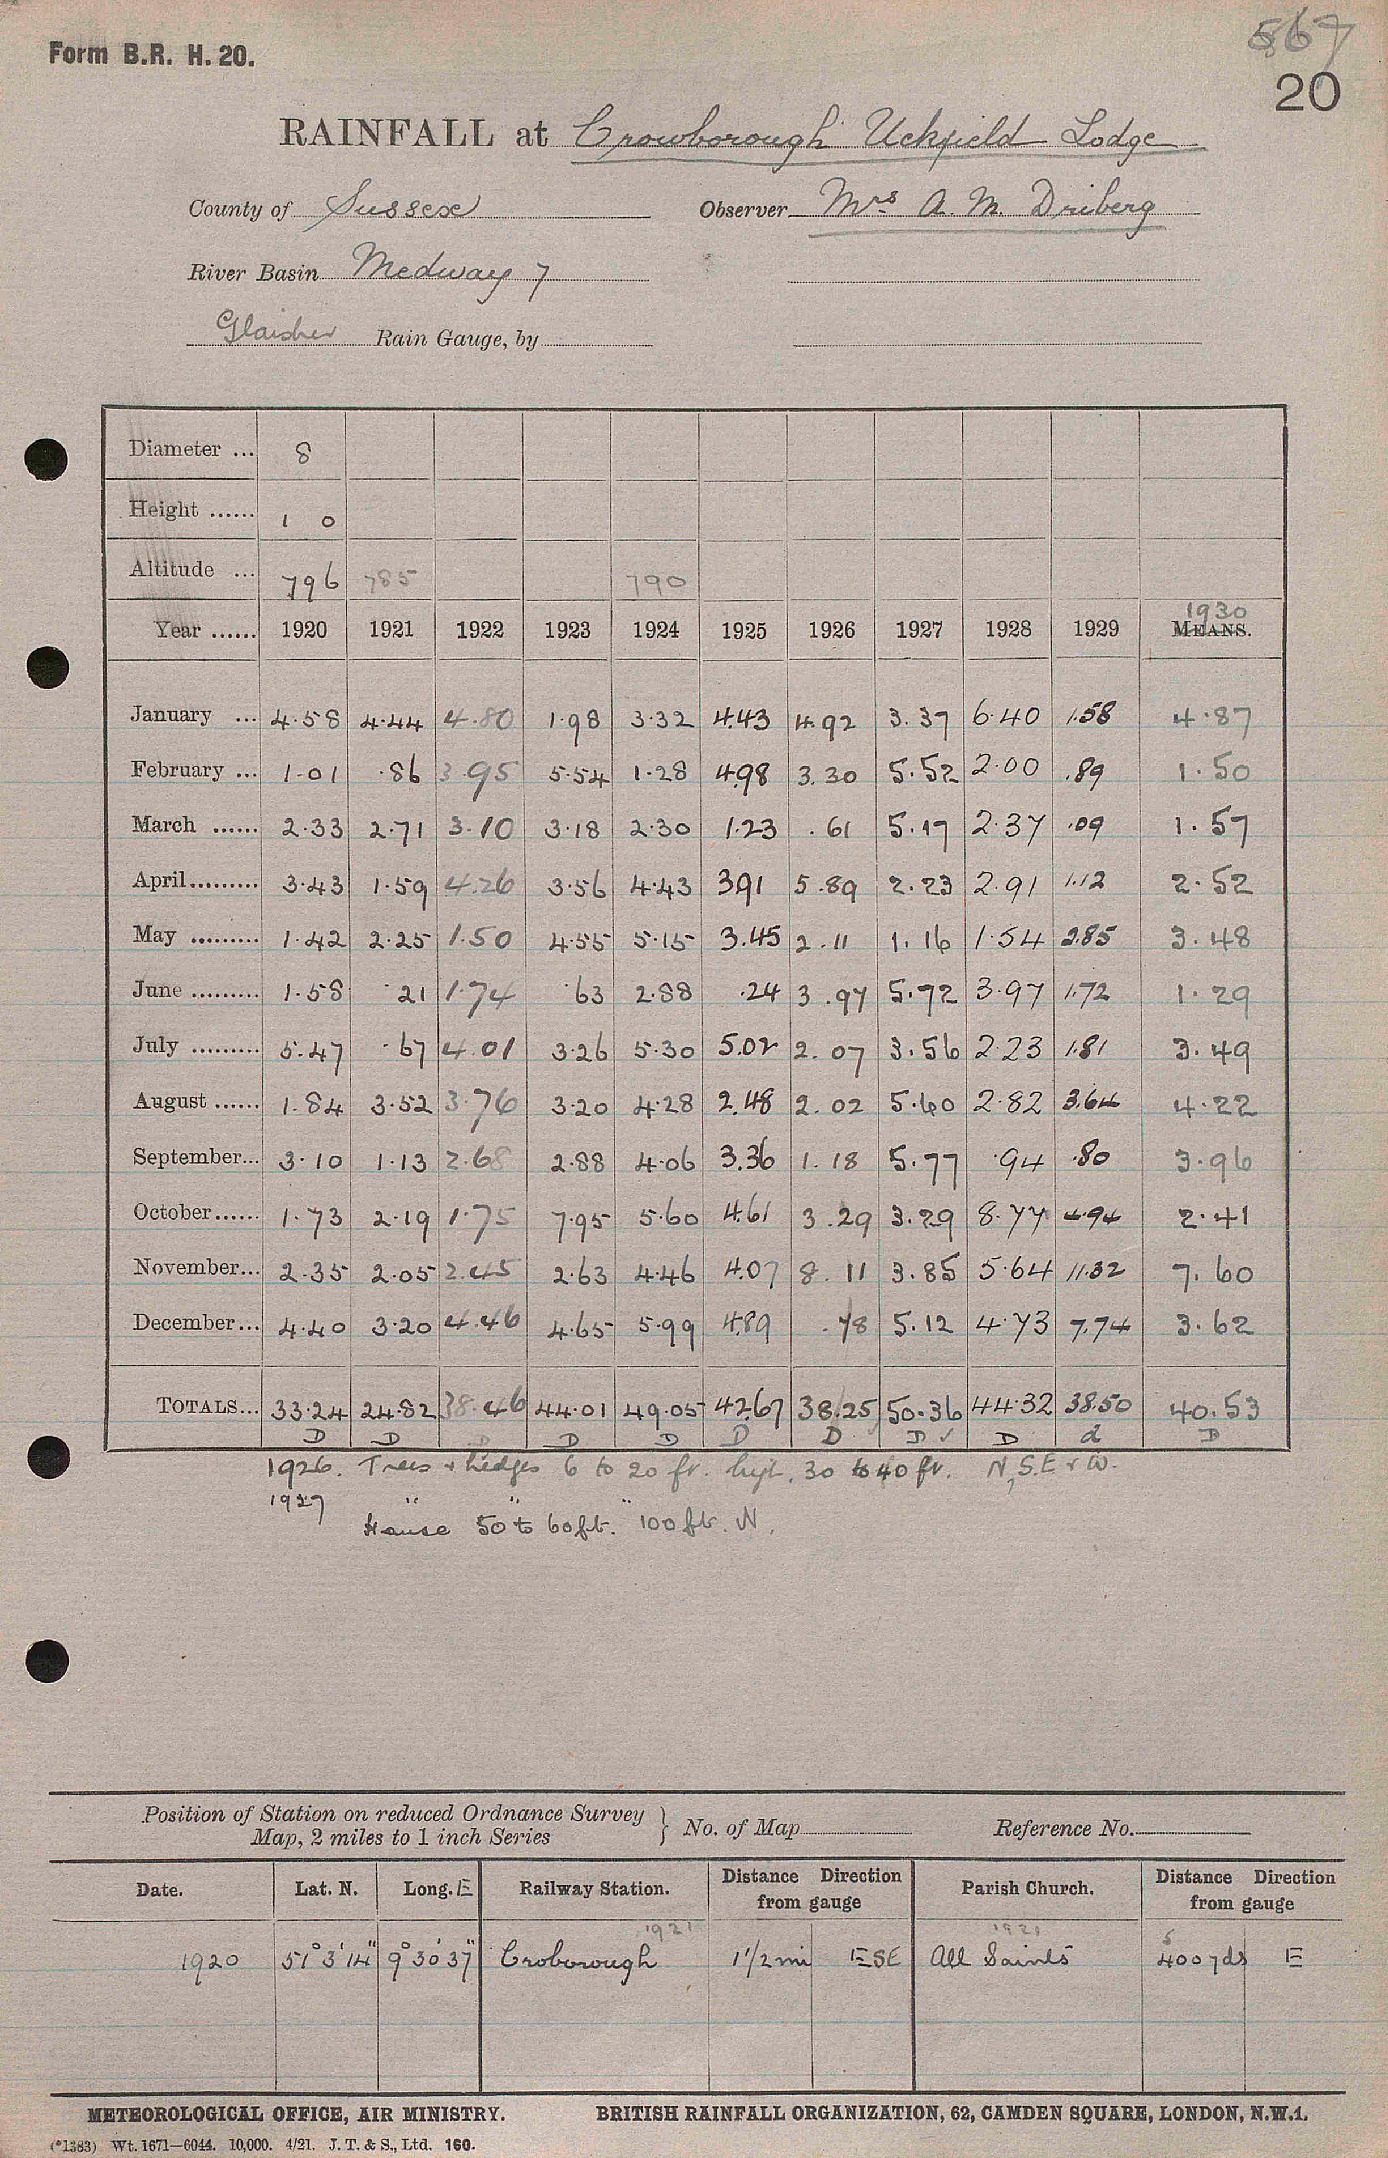 Form B.R. H. 20.
567
20
RAINFALL at Crowborough Uckfield Lodge
County of Sussex Observer Mrs A. M. Driberg
River Basin Medway 7
Glaisher Rain Gauge, by
Diameter ... 8
Height ...... 1 0
Altitude ... 796 785 790
1930
Year ...... 1920 1921 1922 1923 1924 1925 1926 1927 1928 1929 MEANS.
January ... 4.58 4.44 4.80 1.98 3.32 4.43 4.92 3.37 6.40 1.58 4.87
February ... 1.01 .86 3.95 5.54 1.28 4.98 3.30 5.52 2.00 .89 1.50
March ...... 2.33 2.71 3.10 3.18 2.30 1.23 .61 5.17 2.37 .09 1.57
April......... 3.43 1.59 4.26 3.56 4.43 3.91 5.89 2.23 2.91 1.12 2.52
May ......... 1.42 2.25 1.50 4.55 5.15 3.45 2.11 1.16 1.54 2.85 3.48
June ......... 1.58 .21 1.74 .63 2.88 .24 3.97 5.72 3.97 1.72 1.29
July ......... 5.47 .67 4.01 3.26 5.30 5.02 2.07 3.56 2.23 1.81 3.49
August ...... 1.84 3.52 3.76 3.20 4.28 2.48 2.02 5.60 2.82 3.64 4.22
September... 3.10 1.13 2.68 2.88 4.06 3.36 1.18 5.77 .94 .80 3.96
October...... 1.73 2.19 1.75 7.95 5.60 4.61 3.29 3.29 8.77 4.94 2.41
November... 2.35 2.05 2.45 2.63 4.46 4.07 8.11 3.85 5.64 11.32 7.60
December... 4.40 3.20 4.46 4.65 5.99 4.89 .78 5.12 4.73 7.74 3.62
TOTALS... 33.24 24.82 38.46 44.01 49.05 42.67 38.25 50.36 44.32 38.50 40.53
D D D D D D D D ✓ D d D
1926. Trees & hedges 6 to 20 ft. hgt, 30 to 40 ft. N, S. E & W.
1927 " " "
House 50 to 60 ft. 100 ft. N.
Position of Station on reduced Ordnance Survey
Map, 2 miles to 1 inch Series } No. of Map Reference No.
Date. Lat. N. Long. E Railway Station. Distance Direction from gauge Parish Church. Distance Direction from gauge
1921 1921 5
1920 51° 3' 14" 9° 30' 37" Croborough 1 1/2 mi ESE All Saints 400 yds E
METEOROLOGICAL OFFICE, AIR MINISTRY. BRITISH RAINFALL ORGANIZATION, 62, CAMDEN SQUARE, LONDON, N.W.1.
(*1383) Wt. 1671—6044. 10,000. 4/21. J. T. & S., Ltd. 160.